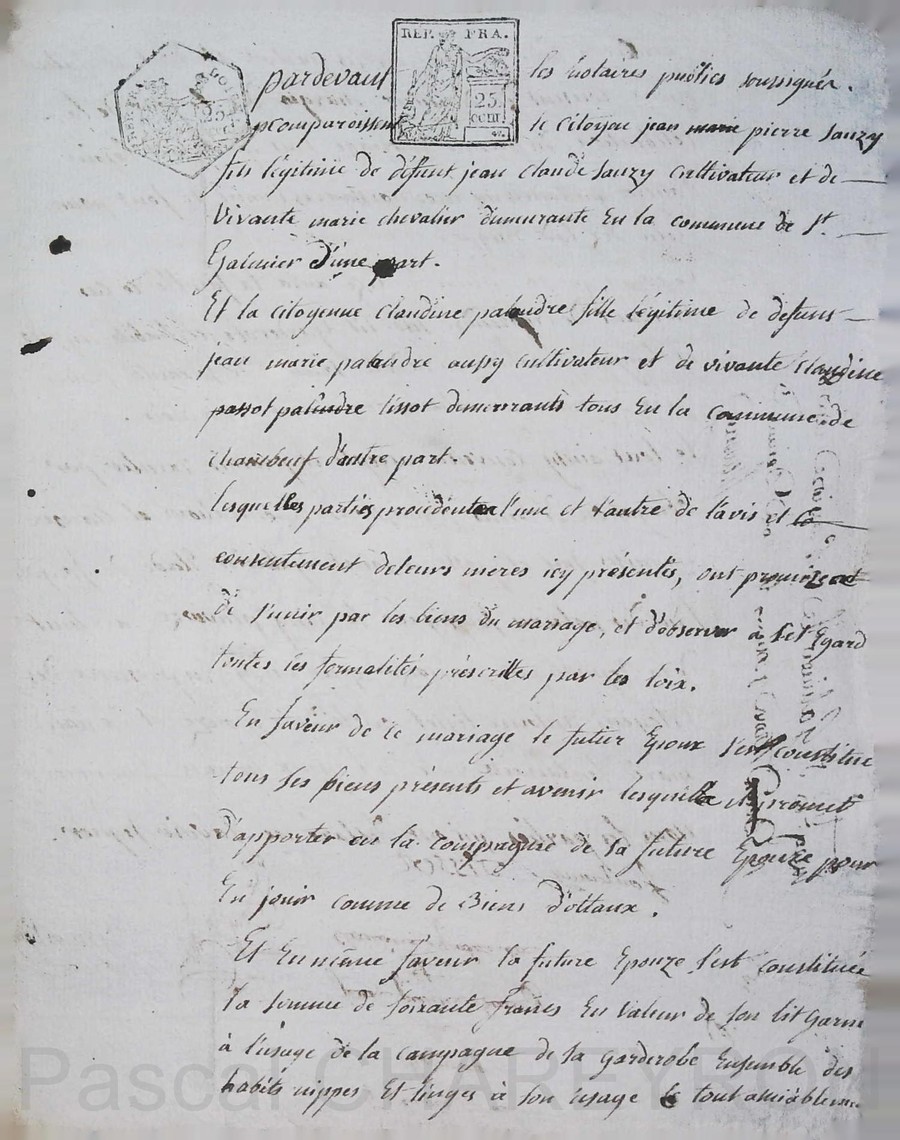 REP. FRA.
25
cent.
pardevant les notaires publics soussignés.
comparoissent le Citoyen jean marie pierre Sauzy
fils légitime de défunt jean Claude Sauzy Cultivateur et de
vivante marie chevalier demurante En la commune de St.
Galmier d'une part.
Et la Citoyenne Claudine palandre fille légitime de defunt
jean marie palandre aussy cultivateur et de vivante Claudine
passot palandre tissot demeurrants tous En la Commune de
chambeuf d'autre part.
lesquelles parties procédentes l'une et l'autre de l'avis et
consentement de leurs mères icy présentes, ont promis
de s'unir par les liens du mariage, et d'observer à set Egard
toutes les formalités préscrittes par les loix.
En faveur de ce mariage le futur Epoux s'est constitué
tous ses biens présents et avenir lesquels il promet
d'apporter en la compagnie de sa future Epouze pour
En jouir comme de Biens d'ottaux.
Et En même faveur la future Epouze s'est constituée
la somme de soixante francs En valeur de son lit Garni
à l'usage de la campagne de sa Garderobe Ensemble des
habits nippes Et linges à son usage le tout amiablem
Pascal CHAREYRON